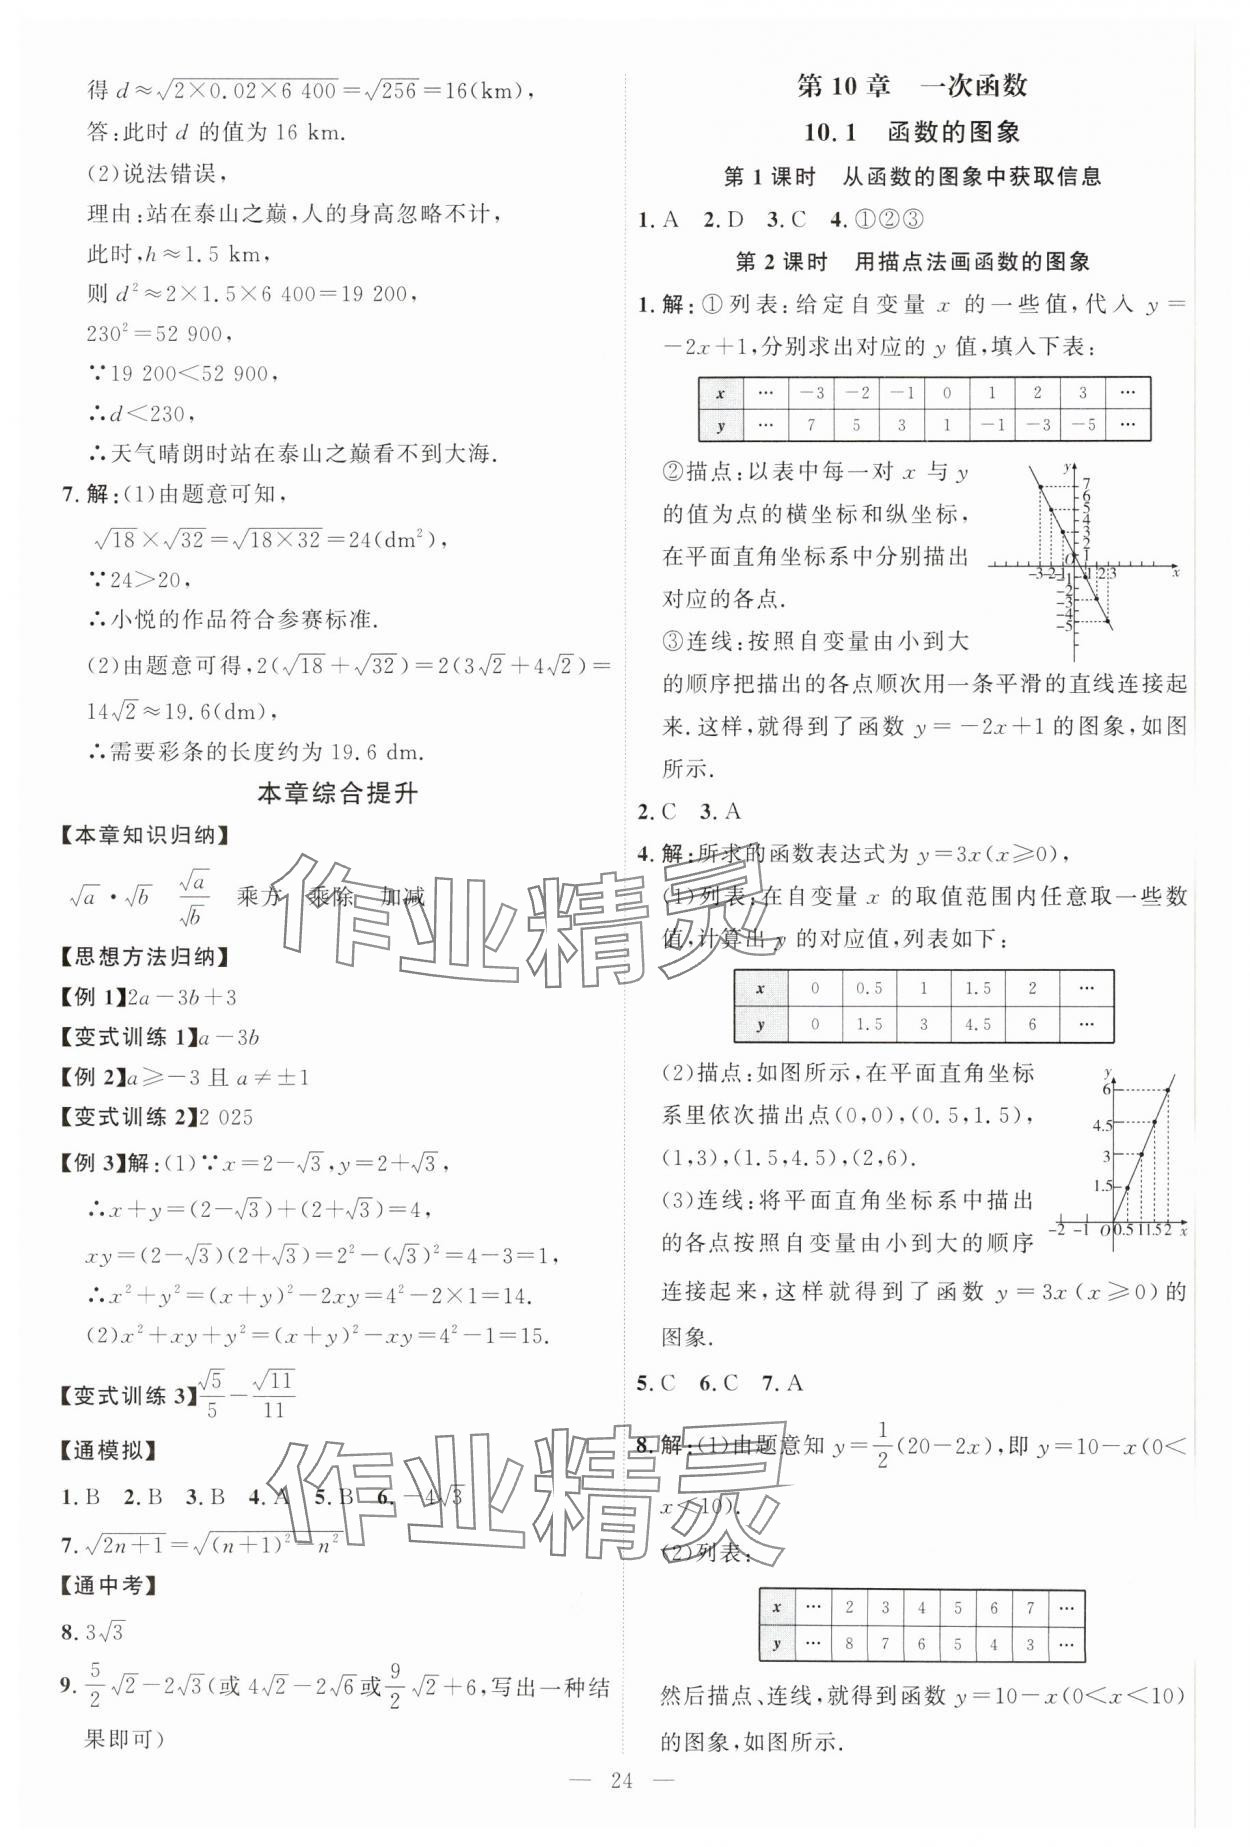 得 d≈√(2×0.02×6 400)=√256=16(km),
答:此时 d 的值为 16 km.
(2)说法错误,
理由:站在泰山之巅,人的身高忽略不计,
此时,h≈1.5 km,
则 d²≈2×1.5×6 400=19 200,
230²=52 900,
∵19 200<52 900,
∴d<230,
∴天气晴朗时站在泰山之巅看不到大海.
7.解:(1)由题意可知,
√18×√32=√(18×32)=24(dm²),
∵24>20,
∴小悦的作品符合参赛标准.
(2)由题意可得,2(√18+√32)=2(3√2+4√2)=
14√2≈19.6(dm),
∴需要彩条的长度约为 19.6 dm.
本章综合提升
【本章知识归纳】
√a·√b √a/√b 乘方 乘除 加减
【思想方法归纳】
【例 1】2a-3b+3
【变式训练 1】a-3b
【例 2】a≥-3 且 a≠±1
【变式训练 2】2 025
【例 3】解:(1)∵x=2-√3,y=2+√3,
∴x+y=(2-√3)+(2+√3)=4,
xy=(2-√3)(2+√3)=2²-(√3)²=4-3=1,
∴x²+y²=(x+y)²-2xy=4²-2×1=14.
(2)x²+xy+y²=(x+y)²-xy=4²-1=15.
【变式训练 3】√5/5-√11/11
【通模拟】
1.B 2.B 3.B 4.A 5.B 6.-4√3
7.√(2n+1)=√((n+1)²-n²)
【通中考】
8.3√3
9.5/2√2-2√3(或 4√2-2√6或9/2√2+6,写出一种结
果即可)
第 10 章 一次函数
10.1 函数的图象
第 1 课时 从函数的图象中获取信息
1.A 2.D 3.C 4.①②③
第 2 课时 用描点法画函数的图象
1.解:①列表:给定自变量 x 的一些值,代入 y=
-2x+1,分别求出对应的 y 值,填入下表:
x … -3 -2 -1 0 1 2 3 …
y … 7 5 3 1 -1 -3 -5 …
②描点:以表中每一对 x 与 y
的值为点的横坐标和纵坐标,
在平面直角坐标系中分别描出
对应的各点.
③连线:按照自变量由小到大
的顺序把描出的各点顺次用一条平滑的直线连接起
来.这样,就得到了函数 y=-2x+1 的图象,如图
所示.
2.C 3.A
4.解:所求的函数表达式为 y=3x(x≥0),
(1)列表:在自变量 x 的取值范围内任意取一些数
值,计算出 y 的对应值,列表如下:
x 0 0.5 1 1.5 2 …
y 0 1.5 3 4.5 6 …
(2)描点:如图所示,在平面直角坐标
系里依次描出点(0,0),(0.5,1.5),
(1,3),(1.5,4.5),(2,6).
(3)连线:将平面直角坐标系中描出
的各点按照自变量由小到大的顺序
连接起来,这样就得到了函数 y=3x(x≥0)的
图象.
5.C 6.C 7.A
8.解:(1)由题意知 y=1/2(20-2x),即 y=10-x(0<
x<10).
(2)列表:
x … 2 3 4 5 6 7 …
y … 8 7 6 5 4 3 …
然后描点、连线,就得到函数 y=10-x(0<x<10)
的图象,如图所示.
— 24 —
作业精灵
作业精灵